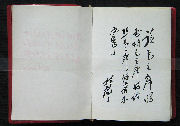 读毛主席的
书听毛主席的
话照毛主席的
指示办事
林彪